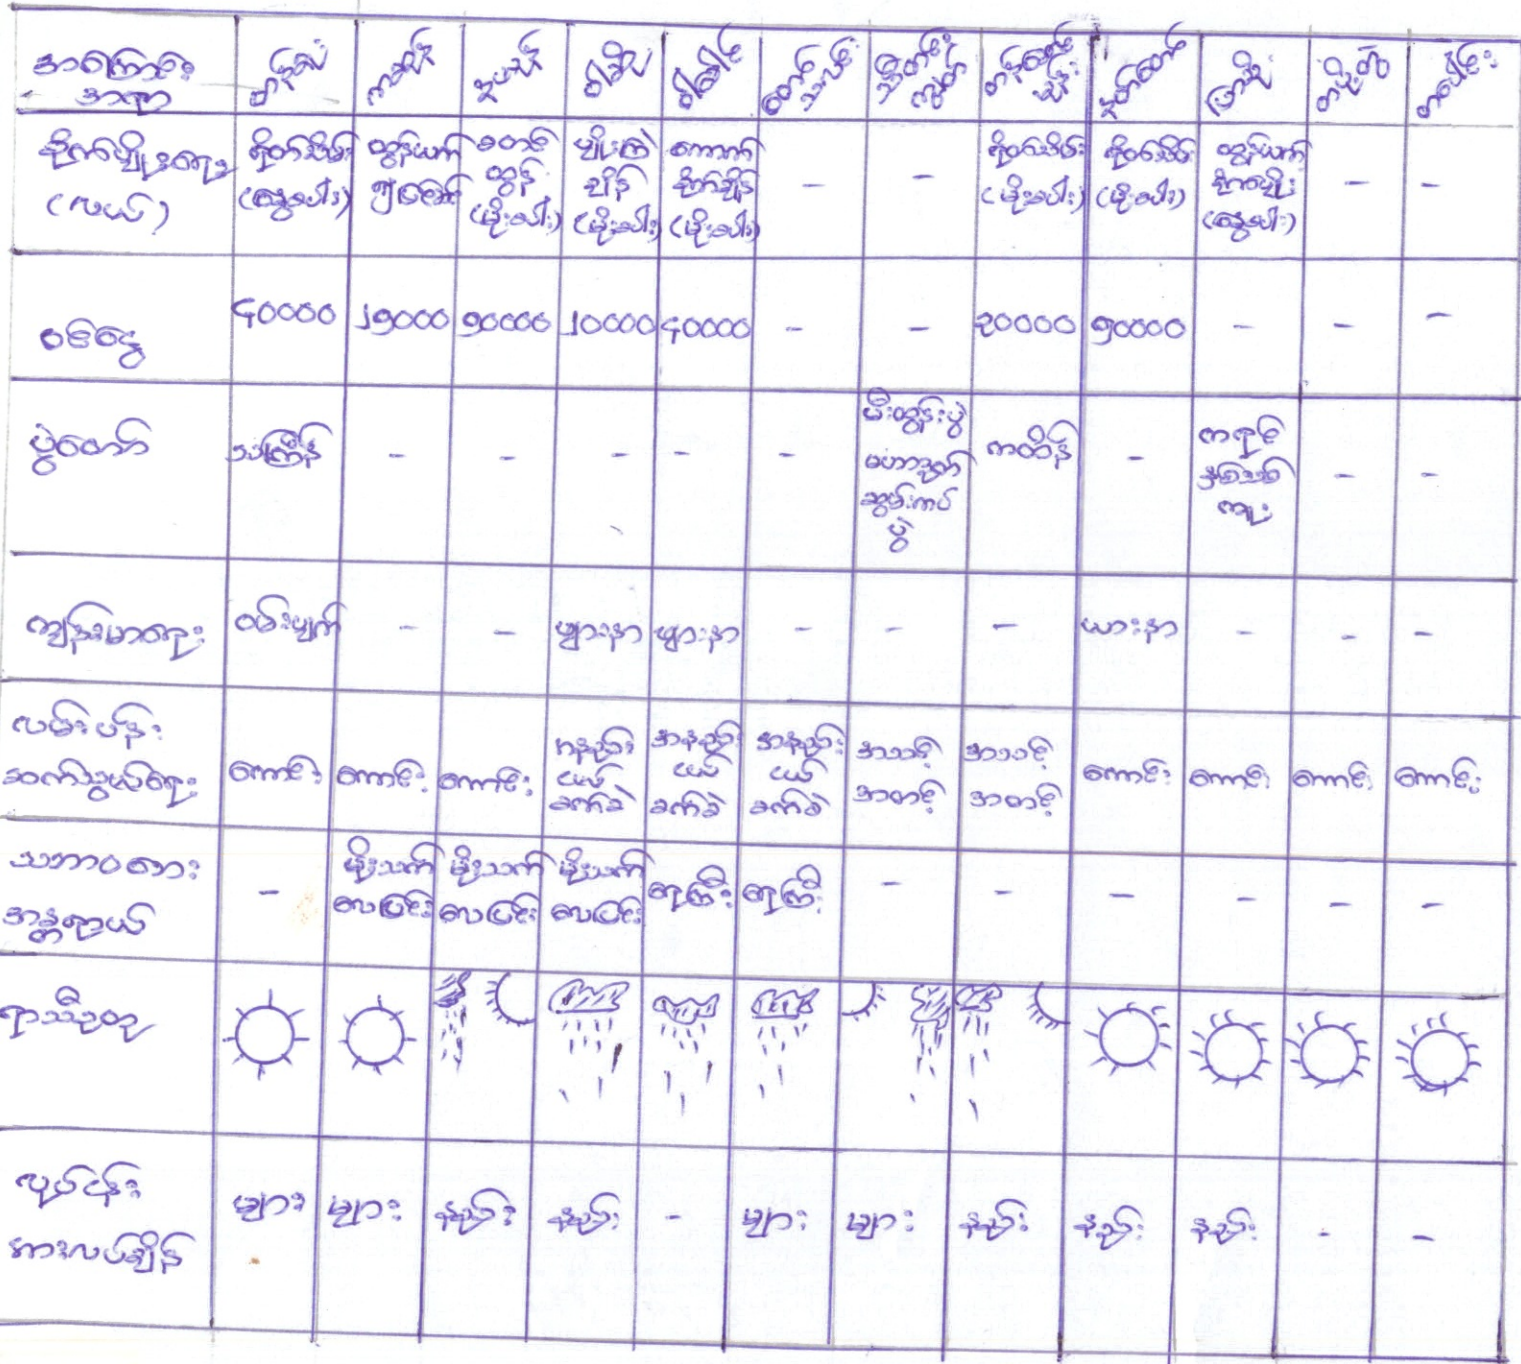 အကြောင်း
အရာ
တန်ခူးလ
ကဆုန်
နယုန်
ဝါဆို
ဝါခေါင်
တော်
သလင်း
သီတင်း
ကျွတ်
တန်ဆောင်
မုန်း
နတ်တော်
ပြာသို
တပို့တွဲ
တပေါင်း
စိုက်ပျိုးရေး
(လယ်)
ရိတ်သိမ်း
(နွေစပါး)
ထွန်ယက်
စတင်
ထွန်
(မိုးစပါး)
ပျိုးကြဲ
ချိန်
(မိုးစပါး)
ကောက်
စိုက်ချိန်
(မိုးစပါး)
–
–
ရိတ်သိမ်း
(မိုးစပါး)
ရိတ်သိမ်း
(မိုးစပါး)
ထွန်ယက်
စိုက်ပျိုး
(နွေစပါး)
–
–
ဝင်ငွေ
၄၀၀၀၀
၂၅၀၀၀
၅၀၀၀၀
၂၀၀၀၀
၄၀၀၀၀
–
–
၃၀၀၀၀
၅၀၀၀၀
–
–
–
ပွဲတော်
သင်္ကြန်
–
–
–
–
–
မီးထွန်းပွဲ
မဟာဒုတ်
ဆွမ်းကပ်
ပွဲ
ကထိန်
–
ကရင်
နှစ်သစ်
ကူး
–
–
ကျန်းမာရေး
ဝမ်းပျက်
–
–
ဖျားနာ
ဖျားနာ
–
–
–
ယားနာ
–
–
–
လမ်းပန်း
ဆက်သွယ်ရေး
ကောင်း
ကောင်း
ကောင်း
အနည်း
ငယ်
ခက်ခဲ
အနည်း
ငယ်
ခက်ခဲ
အနည်း
ငယ်
ခက်ခဲ
အသင့်
အတင့်
အသင့်
အတင့်
ကောင်း
ကောင်း
ကောင်း
ကောင်း
သဘာဝဘေး
အန္တရာယ်
–
မိုးသက်
လေပြင်း
မိုးသက်
လေပြင်း
မိုးသက်
လေပြင်း
ရေကြီး
ရေကြီး
–
–
–
–
–
–
ရာသီဥတု
လုပ်ငန်း
အားလပ်ချိန်
များ
များ
နည်း
နည်း
–
များ
များ
နည်း
နည်း
နည်း
–
–